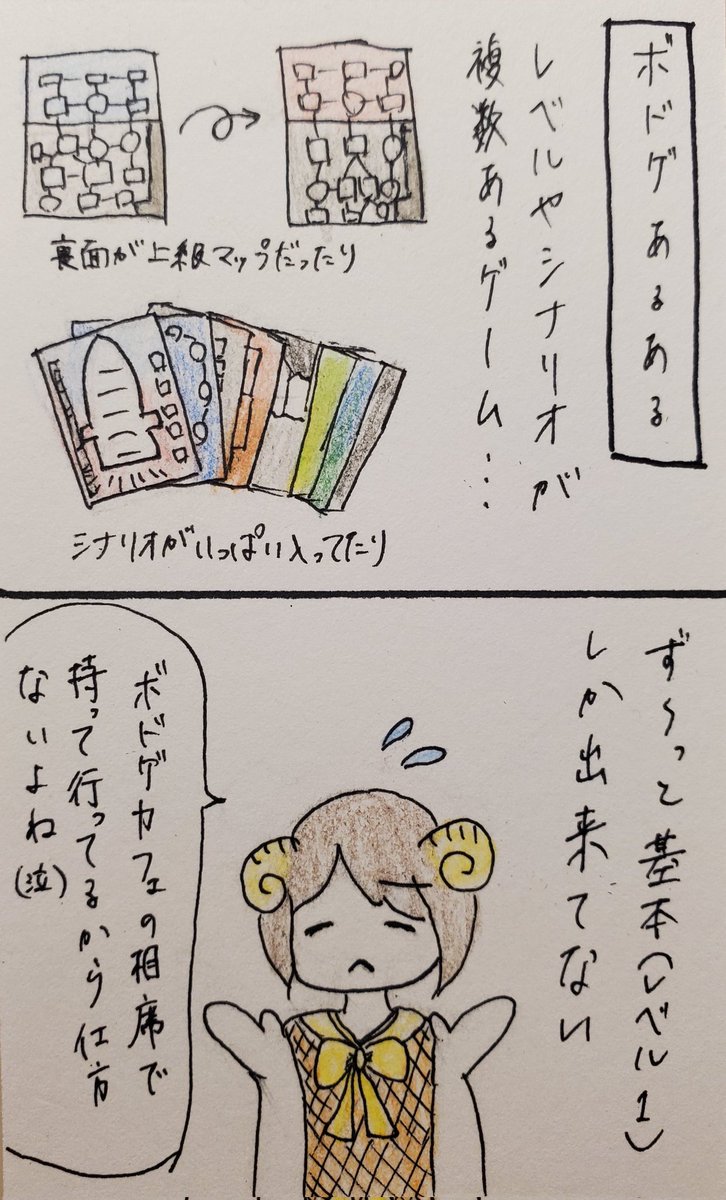 ボドゲあるある
レベルやシナリオが
複数あるゲーム…
裏面が上級マップだったり
シナリオがいっぱい入ってたり
ず〜っと基本(レベル1)
しか出来てない
ボドゲカフェの相席で
持って行ってるから仕方
ないよね(泣)